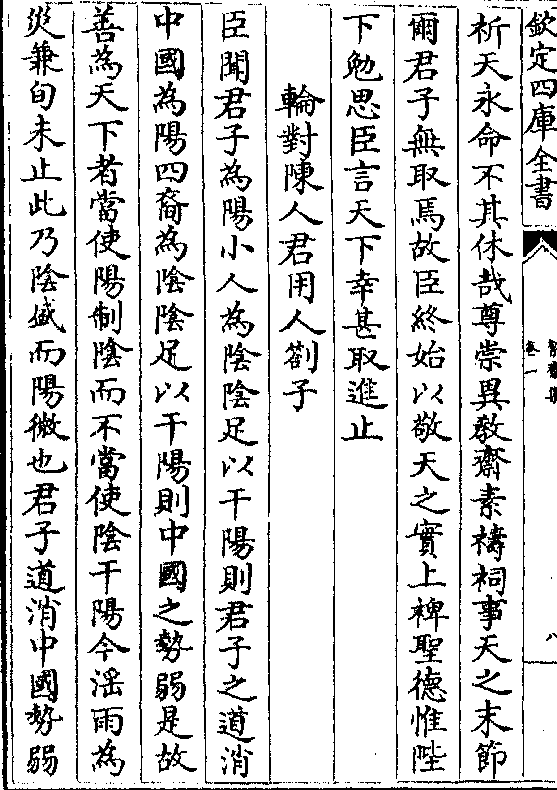 欽定四庫全書
卷一
八
祈天永命不其休哉尊崇異教齋素禱祠事天之末節
爾君子無取焉故臣終始以敬天之實上裨聖德惟陛
下勉思臣言天下幸甚取進止
輪對陳人君用人劄子
臣聞君子為陽小人為陰陰足以干陽則君子之道消
中國為陽四裔為陰陰足以干陽則中國之勢弱是故
善為天下者當使陽制陰而不當使陰干陽今滛雨為
災兼旬未止此乃陰盛而陽微也君子道消中國勢弱